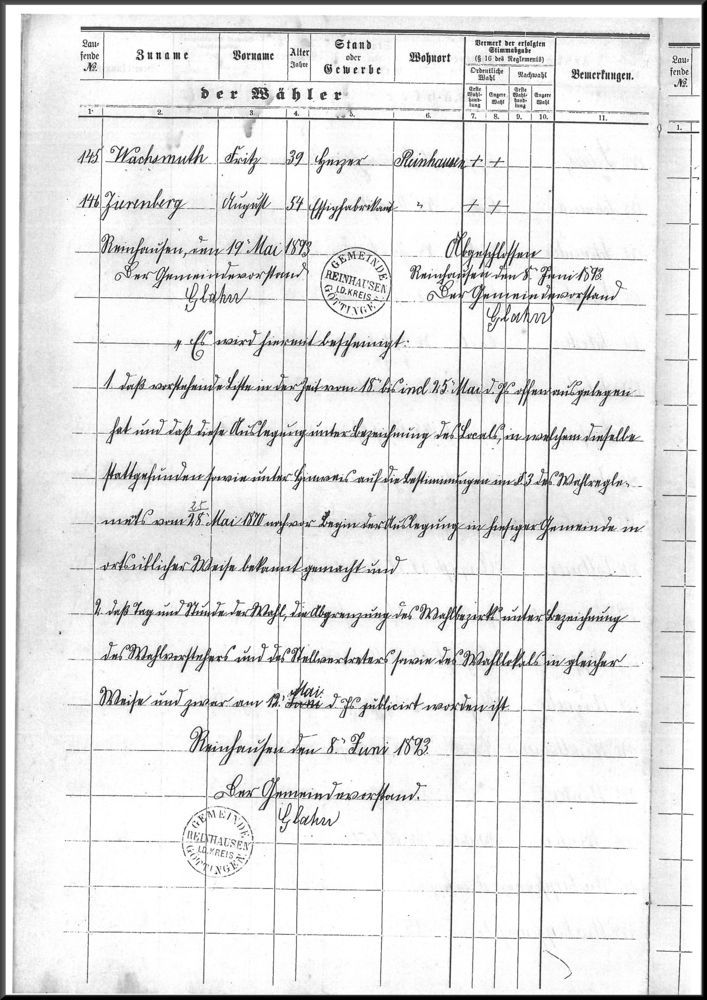 Laufende № Zuname Vorname Alter Jahre Stand oder Gewerbe Wohnort Vermerk der erfolgten Stimmabgabe (§ 16 des Reglements) Bemerkungen.
Ordentliche Wahl Nachwahl
der Wähler
Erste Wahlhandlung Engere Wahl Erste Wahlhandlung Engere Wahl
1. 2. 3. 4. 5. 6. 7. 8. 9. 10. 11.
145 Wachsmuth Fritz 39 Heizer Reinhausen + +
146 Zierenberg August 54 Essigfabrikant " + +
Reinhausen, den 19. Mai 1893
Der Gemeindevorstand
Glahn
GEMEINDE REINHAUSEN I.D.KREIS GÖTTINGEN
Abgeschlossen
Reinhausen den 8. Juni 1893.
Der Gemeindevorstand
Glahn
" Es wird hiermit bescheinigt:
1. daß vorstehende Liste in der Zeit vom 18. bis incl 25. Mai d. Js offen ausgelegen
hat und daß diese Auslegung unter Bezeichnung des Locals, in welchem dieselbe
stattgefunden sowie unter Hinweis auf die Bestimmungen im § 3 des Wahlregle-
ments vom 28. Mai 1870 noch vor Begin der Auslegung in hiesiger Gemeinde in
ortsüblicher Weise bekannt gemacht und
2. daß Tag und Stunde der Wahl, die Abgrenzung des Wahlbezirks unter Bezeichnung
des Wahlvorstehers und des Stellvertreters sowie des Wahllokals in gleicher
Weise und zwar am 12. Mai d Js publicirt worden ist
Reinhausen den 8. Juni 1893.
Der Gemeindevorstand.
Glahn
GEMEINDE REINHAUSEN I.D.KREIS GÖTTINGEN
Laufende №
1.